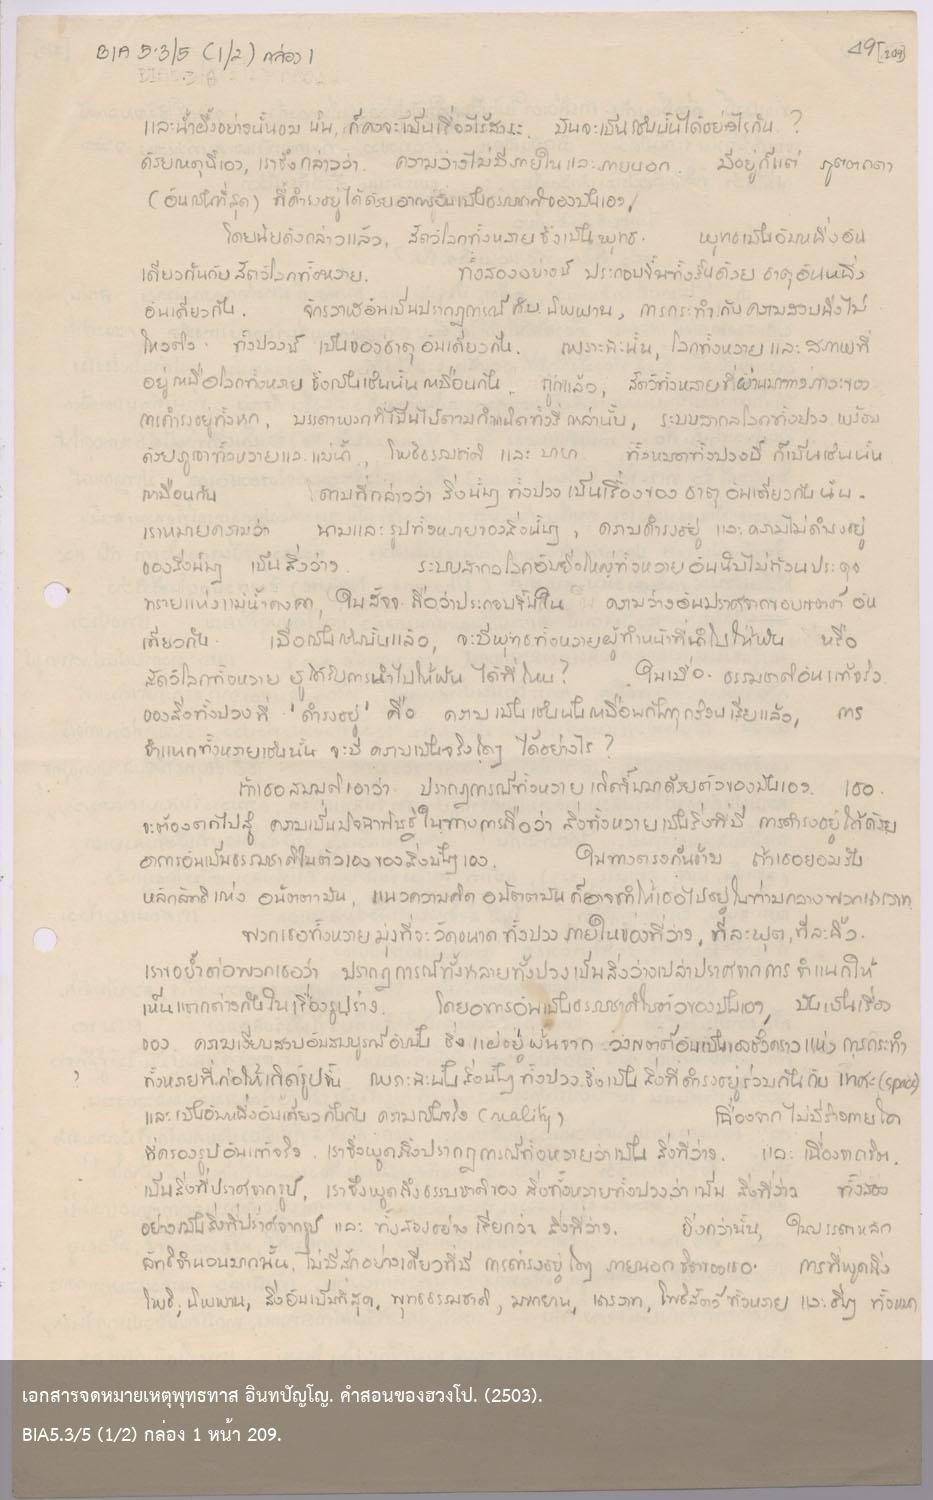 BIA 5.3/5 (1/2) กล่อง 1
49 [209]
และน้ำผึ้งอย่างนั้นอย่างนั้น, ก็คงจะเป็นเรื่องไร้สาระ. มันจะเป็นเช่นนั้นได้อย่างไรกัน ?
ด้วยเหตุนี้เอง, เราจึงกล่าวว่า ความว่างไม่มีภายในและภายนอก. มีอยู่ก็แต่ ภูตตถตา
(อันเป็นที่สุด) ที่ดำรงอยู่ได้ด้วยอาการอันเป็นธรรมชาติของมันเอง,
โดยนัยดังกล่าวแล้ว, สัตว์โลกทั้งหลาย จึงเป็นพุทธะ. พุทธะเป็นอันหนึ่งอัน
เดียวกันกับสัตว์โลกทั้งหลาย. ทั้งสองอย่างนี้ ประกอบขึ้นทั้งสิ้นด้วย ธาตุอันหนึ่ง
อันเดียวกัน. จักรวาฬอันเป็นปรากฏการณ์ กับ นิพพาน, การกระทำ กับ ความสงบนิ่งไม่
ไหวติง ทั้งปวงนี้ เป็นของธาตุ อันเดียวกัน. เพราะฉะนั้น, โลกทั้งหลาย และ สภาพที่
อยู่เหนือโลกทั้งหลาย จึงเป็นเช่นนั้น เหมือนกัน. ถูกแล้ว, สัตว์ทั้งหลายที่ผ่านมาทางภาวะของ
การดำรงอยู่ทั้งหก, บรรดาพวกที่เป็นไปตามกำเนิดทั้งสี่ เหล่านั้น, ระบบสากลโลกทั้งปวง พร้อม
ด้วยภูเขาทั้งหลายและแม่น้ำ, โพธิธรรมชาติ และ มายา ทั้งหมดทั้งปวงนี้ ก็เป็นเช่นนั้น
เหมือนกัน โดยที่กล่าวว่า สิ่งนั้นๆ ทั้งปวง เป็นเรื่องของ ธาตุ อันเดียวกันนั้น.
เราหมายความว่า นามและรูปทั้งหลายของสิ่งนั้นๆ, ความดำรงอยู่ และ ความไม่ดำรงอยู่
ของสิ่งนั้นๆ เป็นสิ่งว่าง. ระบบสากลโลกอันยิ่งใหญ่ทั้งหลาย อันนับไม่ถ้วนประดุจ
ทรายแห่งแม่น้ำคงคา, ในสัจจะ ถือว่าประกอบขึ้นใน ความว่างอันปราศจากขอบเขตต์ อัน
เดียวกัน. เมื่อเป็นเช่นนั้นแล้ว, จะมีพุทธะทั้งหลายผู้ทำหน้าที่นำไปให้พ้น หรือ
สัตว์โลกทั้งหลาย ผู้ได้รับการนำไปให้พ้น ได้ที่ไหน? ในเมื่อ ธรรมชาติอันแท้จริง
ของสิ่งทั้งปวงที่ 'ดำรงอยู่' คือ ความเป็นเช่นนั้นเหมือนกันทุกสิ่งเสียแล้ว, การ
จำแนกทั้งหลายเช่นนั้น จะมี ความเป็นจริงใดๆ ได้อย่างไร ?
ถ้าเธอสมมุติเอาว่า ปรากฏการณ์ทั้งหลาย เกิดขึ้นมาด้วยตัวของมันเอง เธอ
จะต้องตกไปสู่ ในทางการถือว่า สิ่งทั้งหลายเป็นสิ่งที่มี การดำรงอยู่ได้ด้วย
อาการอันเป็นธรรมชาติในตัวเองของสิ่งนั้นๆ เอง. ในทางตรงกันข้าม ถ้าเธอยอมรับ
หลักลัทธิแห่ง อนัตตามัน, แนวความคิด อนัตตามัน ก็อาจทำให้เธอไปอยู่ในท่ามกลางพวกเถรวาท
พวกเธอทั้งหลาย มุ่งที่จะวัดขนาดทั้งปวง ภายในของที่ว่าง, ทีละฟุต, ทีละนิ้ว.
เราขอย้ำต่อพวกเธอว่า ปรากฏการณ์ทั้งหลายทั้งปวง เป็นสิ่งว่างเปล่าปราศจากการ จำแนกให้
เห็นแตกต่างกันในเรื่องรูปร่าง. โดยอาการอันเป็นธรรมชาติในตัวของมันเอง, มันเป็นเรื่อง
ของ ความเงียบสงบอันสมบูรณ์ อันนั้น ซึ่งแฝงอยู่พ้นจาก วงเขตต์อันเป็น แห่ง การกระทำ
? ทั้งหลายที่ก่อให้เกิดรูปขึ้น เพราะฉะนั้น สิ่งนั้นๆ ทั้งปวง จึงเป็น สิ่งที่ดำรงอยู่ร่วมกันกับ เทศะ (space)
และเป็นอันหนึ่งอันเดียวกันกับ ความเป็นจริง (reality) เนื่องจาก ไม่มีร่างกายใด
ที่ครองรูปอันแท้จริง เราจึงพูดถึงปรากฏการณ์ทั้งหลายว่าเป็น สิ่งที่ว่าง. และ เนื่องจากจิต,
เป็นสิ่งที่ปราศจากรูป, เราจึงพูดถึงธรรมชาติของ สิ่งทั้งหลายทั้งปวงว่า เป็น สิ่งที่ว่าง ทั้งสอง
อย่างเป็นสิ่งที่ปราศจากรูป และ ทั้งสองอย่าง เรียกว่า สิ่งที่ว่าง. ยิ่งกว่านั้น, ในบรรดาหลัก
ลัทธิจำนวนมากนั้น, ไม่มีสักอย่างเดียวที่มี การดำรงอยู่ใดๆ ภายนอก จิตของเธอ. การที่พูดถึง
โพธิ, นิพพาน, สิ่งอันเป็นที่สุด, พุทธธรรมชาติ, มหายาน, เถรวาท, โพธิสัตว์ทั้งหลาย และอื่นๆ ทั้งหมด
เอกสารจดหมายเหตุพุทธทาส อินทปัญโญ. คำสอนของฮวงโป. (2503).
BIA5.3/5 (1/2) กล่อง 1 หน้า 209.